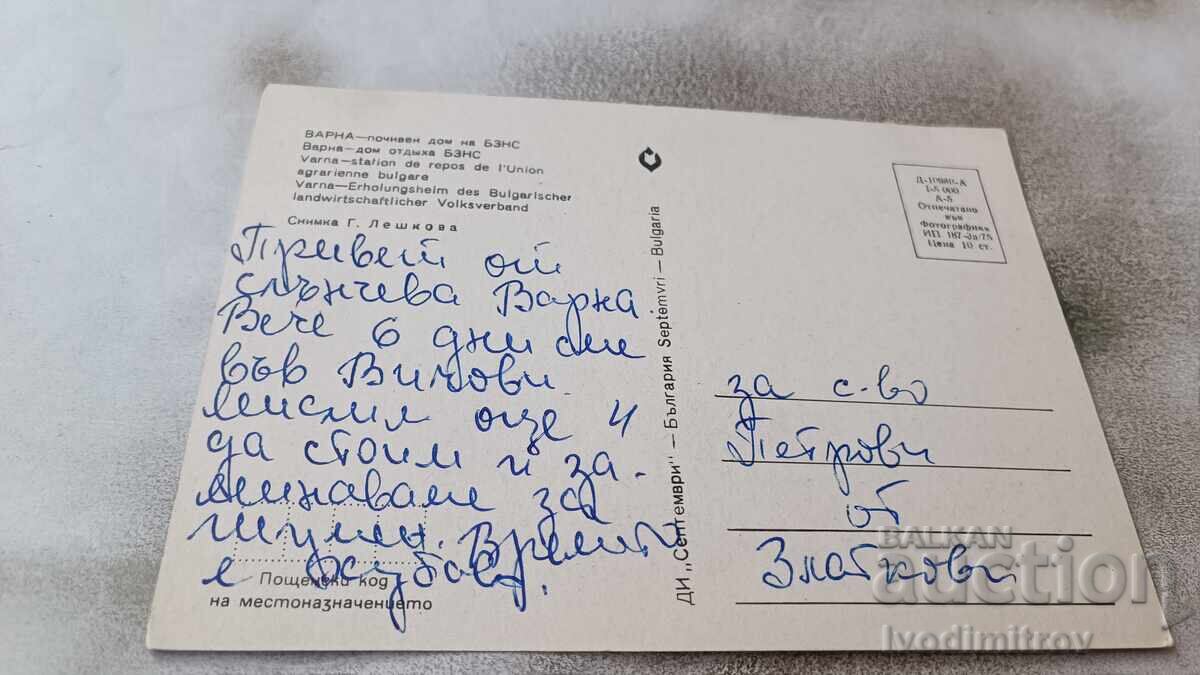 ВАРНА—почивен дом на БЗНС
Варна—дом отдыха БЗНС
Varna—station de repos de l'Union
agrarienne bulgare
Varna—Erholungsheim des Bulgarischer
landwirtschaftlicher Volksverband
Снимка Г. Лешкова
Привет от
слънчева Варна.
Вече 6 дни сме
във Вичови.
Мислим още 4
да стоим и за-
минаваме за
Шумен. Времето
е хубаво.
Пощенски код
на местоназначението
ДИ „Септември" — България Septemvri — Bulgaria
А-5
Отпечатано
във
Фотографика
ИП. 187-Зп/75
Цена 10 ст.
за с-во
Петрови
от
Златкови
BALKAN
auction
Ivodimitrov